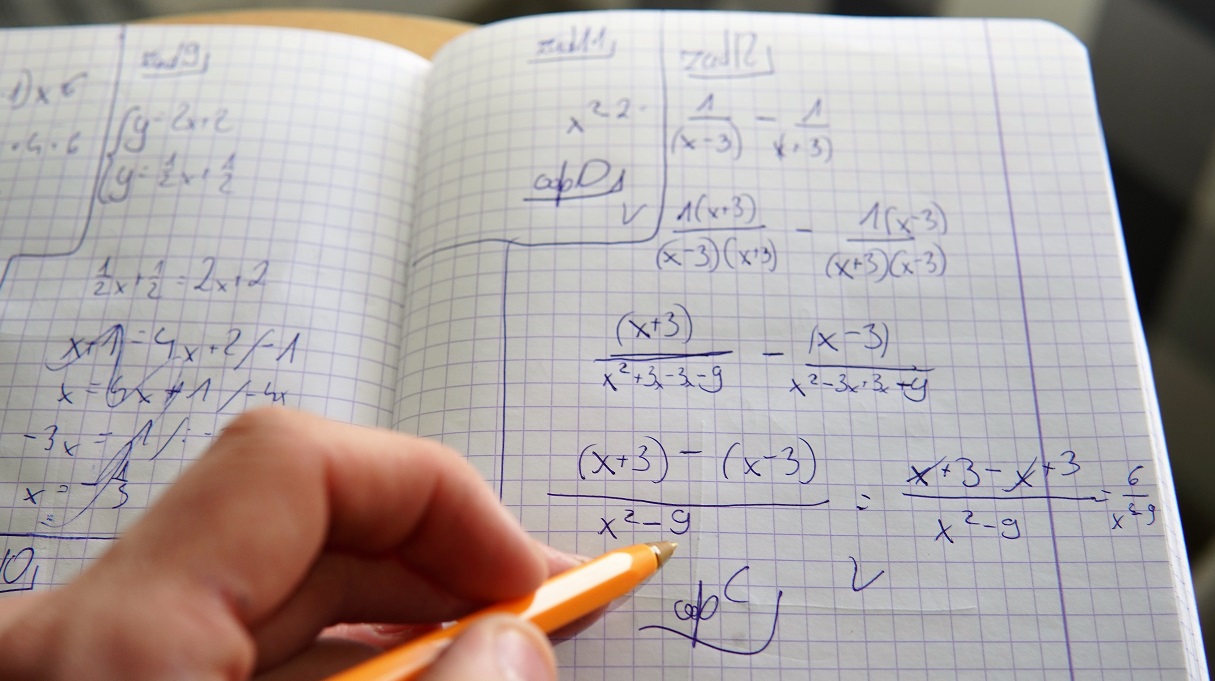 1) x
zad 9
{ y = 2x + 2
{ y = 1/2 x + 1/2
1/2 x + 1/2 = 2x + 2
x + 1 = 4x + 2 / -1
x = 4x + 1 / -4x
-3x = 1 / : -
x = - 1/3
10
zad 11
x² - 2
odp D
zad 12
1/(x-3) - 1/(x+3)
1(x+3)/(x-3)(x+3) - 1(x-3)/(x+3)(x-3)
(x+3)/x²+3x-3x-9 - (x-3)/x²-3x+3x-9
(x+3) - (x-3)/x²-9 = x+3-x+3/x²-9 = 6/x²-9
odp C